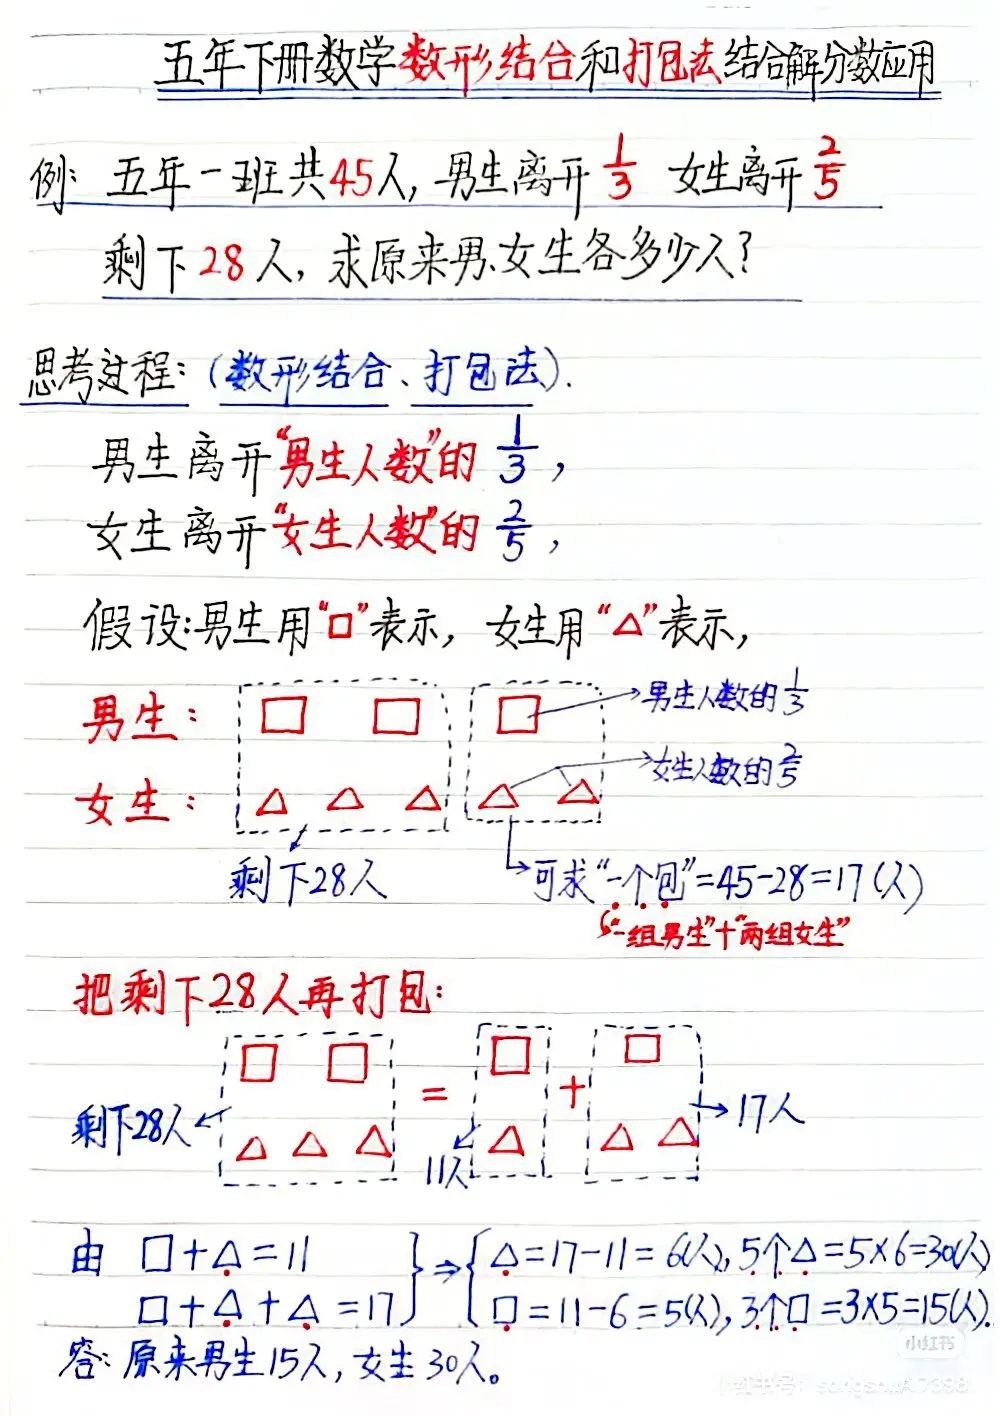 五年下册数学数形结合和打包法结合解分数应用
例: 五年一班共45人, 男生离开1/3 女生离开2/5
剩下28人, 求原来男、女生各多少人?
思考过程:(数形结合、打包法).
男生离开"男生人数"的1/3,
女生离开"女生人数"的2/5,
假设:男生用"□"表示, 女生用"△"表示,
男生: □ □ □ →男生人数的1/3
女生: △ △ △ △ △ →女生人数的2/5
剩下28人
可求"一个包"=45-28=17(人)
"一组男生"+"两组女生"
把剩下28人再打包:
□ □ = □ + □
剩下28人 △ △ △ △ △ △ 17人
11人
由 □+△=11
□+△+△=17
⇒ { △=17-11=6(人), 5个△=5×6=30(人)
□=11-6=5(人), 3个□=3×5=15(人).
答: 原来男生15人, 女生30人。
小红书
小红书号: